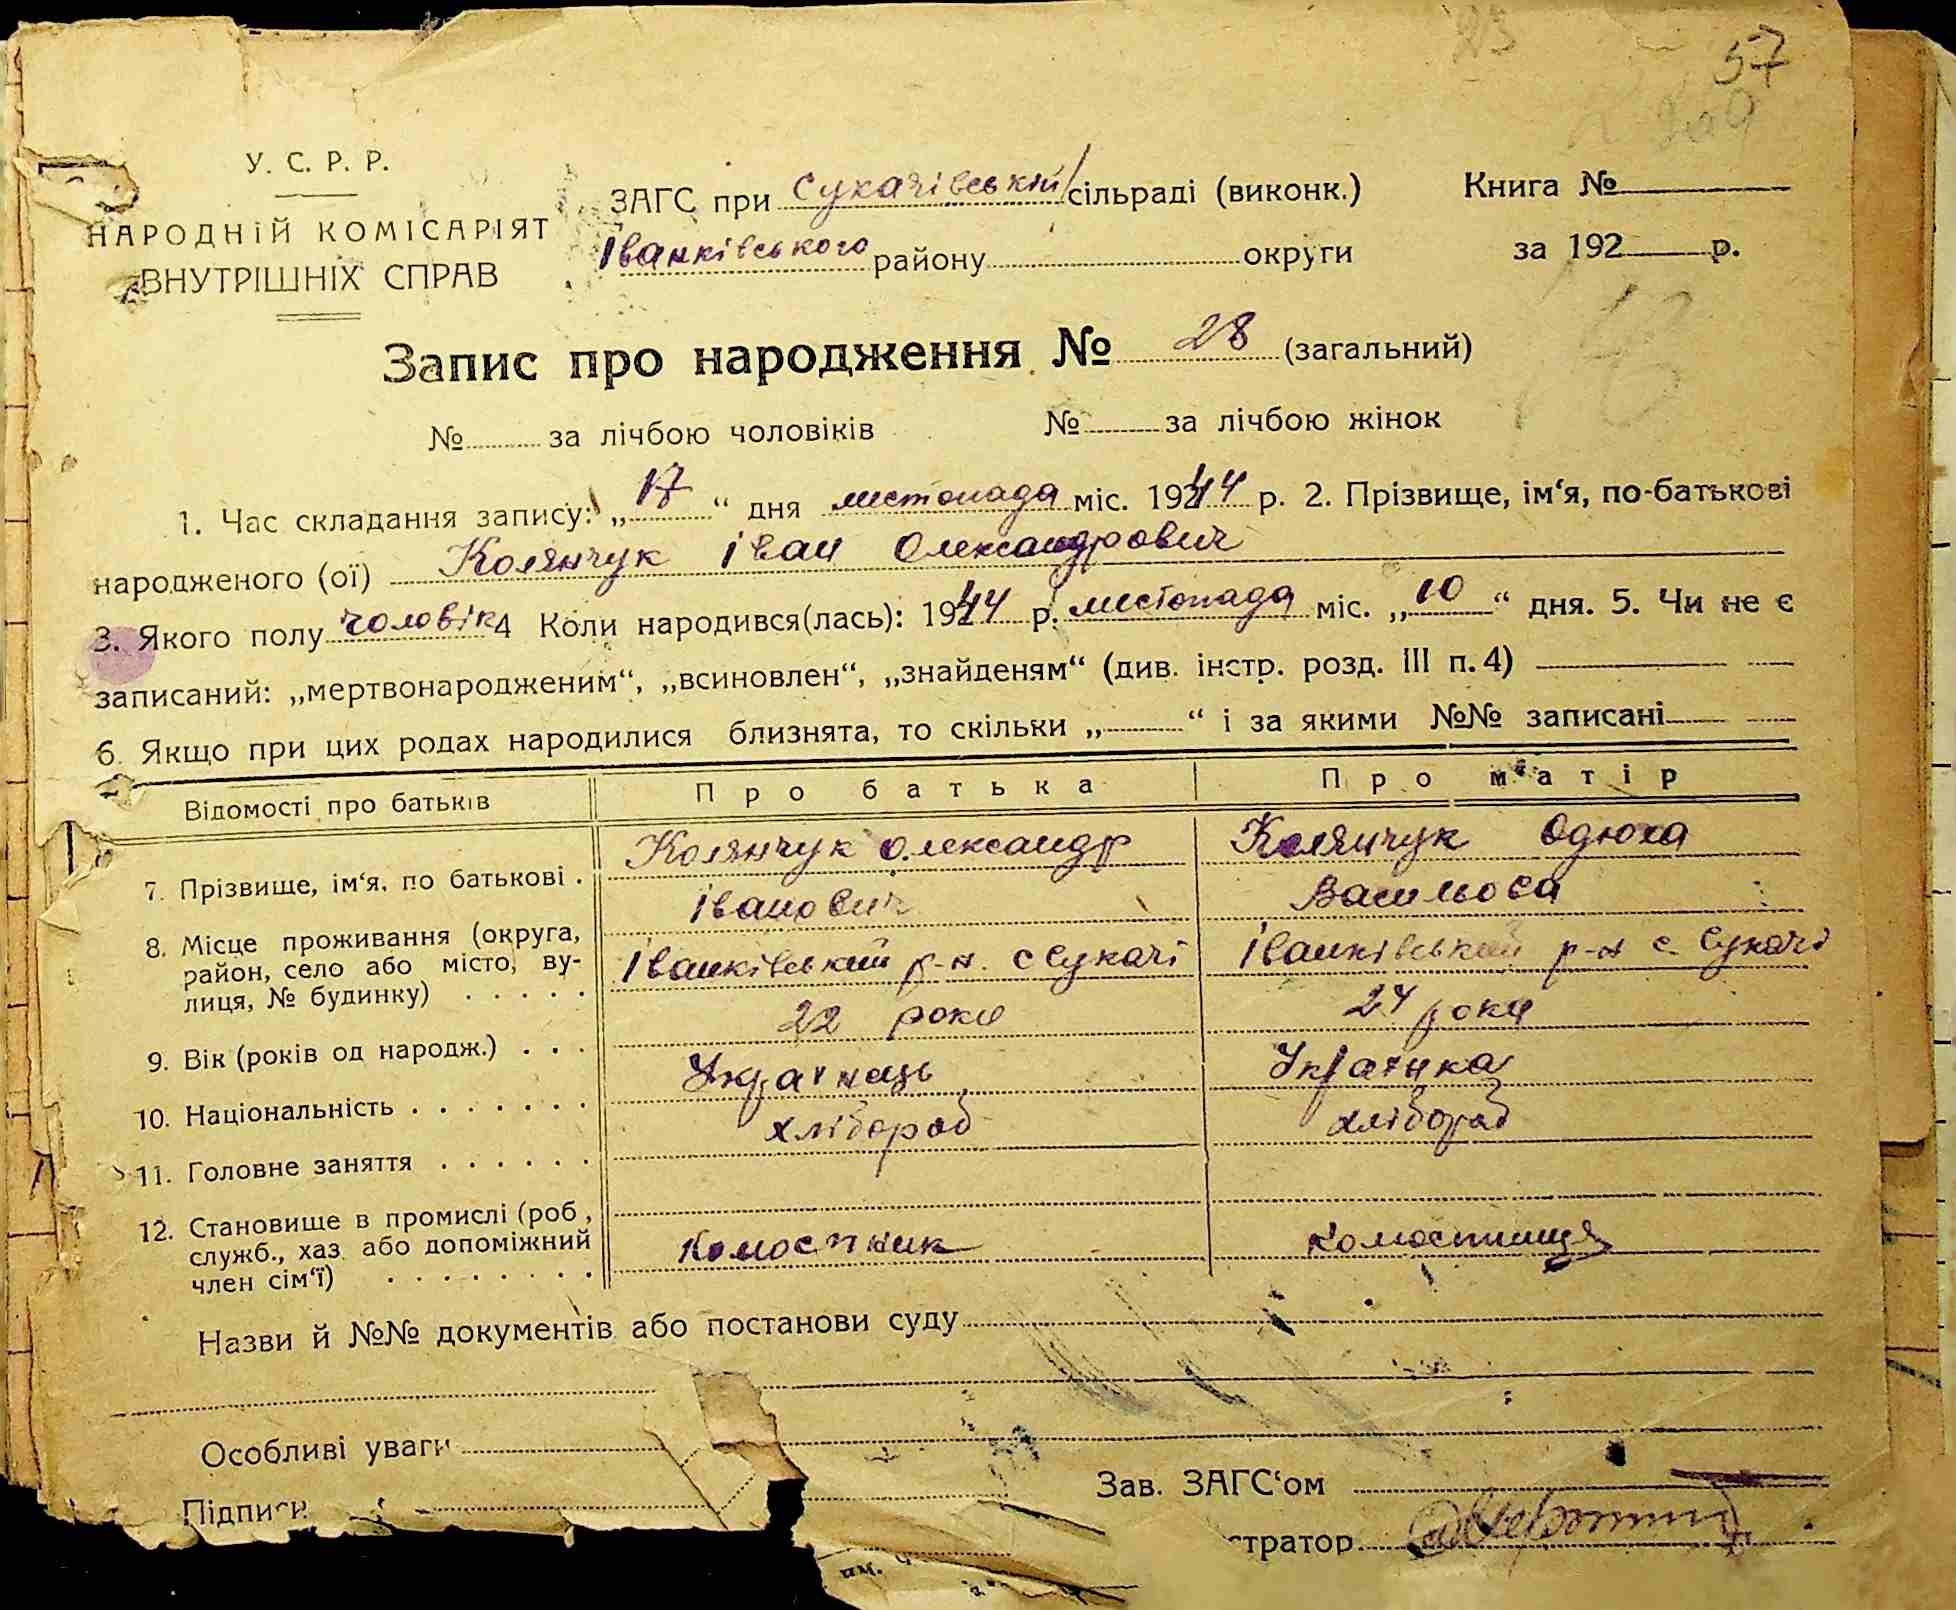 57
У. С. Р. Р.
НАРОДНІЙ КОМІСАРІЯТ
ВНУТРІШНІХ СПРАВ
ЗАГС при Сукачівській сільраді (виконк.)
Іванківського району округи
Книга №
за 192 р.
Запис про народження № 28 (загальний)
№ за лічбою чоловіків № за лічбою жінок
1. Час складання запису: „17“ дня листопада міс. 1944 р. 2. Прізвище, ім‘я, по-батькові
народженого (ої) Колянчук Іван Олександрович
3. Якого полу чоловік 4 Коли народився(лась): 1944 р. листопада міс. „10“ дня. 5. Чи не є
записаний: „мертвонародженим“, „всиновлен“, „знайденям“ (див. інстр. розд. III п. 4)
6. Якщо при цих родах народилися близнята, то скільки „ “ і за якими №№ записані
Відомості про батьків Про батька Про матір
7. Прізвище, ім‘я, по батькові . Колянчук Олександр Іванович Колянчук Одюха Васильова
8. Місце проживання (округа,
район, село або місто, ву-
лиця, № будинку) . . . . . Іванківський р-н. с Сукачі Іванківський р-н с. Сукачі
9. Вік (років од народж.) . . . 22 роки 24 роки
10. Національність . . . . . . . Українець Українка
11. Головне заняття . . . . . . хлібороб хлібороб
12. Становище в промислі (роб,
служб., хаз. або допоміжний
член сім‘ї) . . . . . . . . комоспник комоспниця
Назви й №№ документів або постанови суду
Особливі уваги
Підписи
Зав. ЗАГС‘ом
стратор